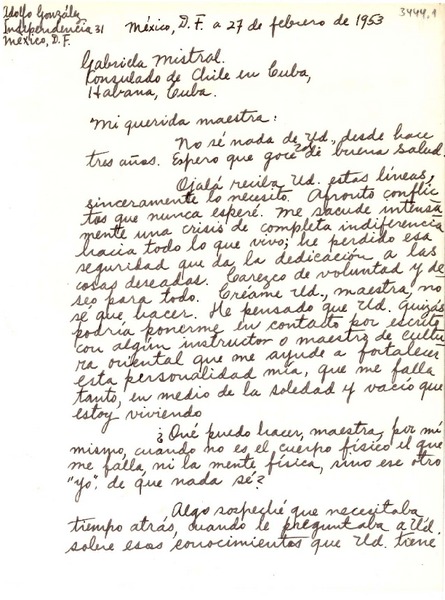 Idolfo González
Independencia 31
México, D.F.
México, D.F. a 27 de febrero de 1953
3444.1
Gabriela Mistral.
Consulado de Chile en Cuba,
Habana, Cuba.
Mi querida maestra:
No sé nada de Ud., desde hace
tres años. Espero que goce de buena salud.
Ojalá reciba Ud. estas líneas,
sinceramente lo necesito. Afronto conflic-
tos que nunca esperé. Me sacude intensa
mente una crisis de completa indiferencia
hacia todo lo que vivo; he perdido esa
seguridad que da la dedicación a las
cosas deseadas. Carezco de voluntad y de
seo para todo. Créame Ud., maestra, no
sé que hacer. He pensado que Ud. quizás
podría ponerme en contacto por escrito
con algún instructor o maestro de cultu-
ra oriental que me ayude a fortalecer
esta personalidad mía, que me falla
tanto, en medio de la soledad y vacío que
estoy viviendo
¿Qué puedo hacer, maestra, por mí
mismo, cuando no es el cuerpo físico el que
me falla, ni la mente física, sino ese otro
"yo". de que nada sé?
Algo sospeché que necesitaba
tiempo atrás, cuando le preguntaba a Ud.
sobre esos conocimientos que Ud. tiene